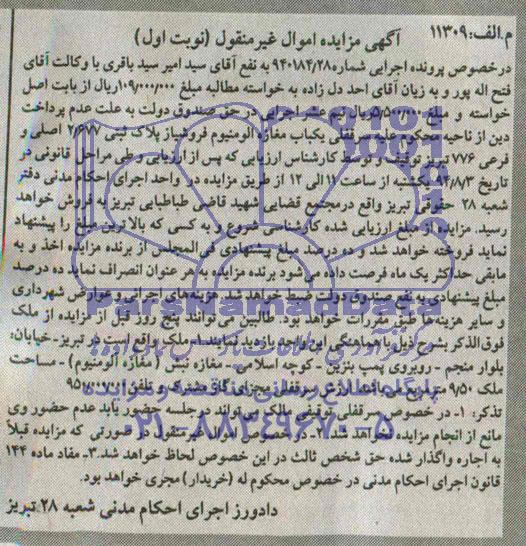 م.الف:۱۱۳۰۹
آگهی مزایده اموال غیرمنقول (نوبت اول)
درخصوص پرونده اجرایی شماره ۹۴۰۱۸۴/۲۸ به نفع آقای سید امیر سید باقری با وکالت آقای
فتح اله پور و به زیان آقای احد دل زاده به خواسته مطالبه مبلغ ۱۰۹/۰۰۰/۰۰۰ریال از بابت اصل
خواسته و مبلغ ریال نیم عشر اجرایی در حق صندوق دولت به علت عدم پرداخت
دین از ناحیه محکوم علیه سرقفلی یکباب مغازه آلومنیوم فروشباز پلاک ثبتی ۲/۶۷۷ اصلی و
فرعی ۷۷۶ تبریز توقیف و توسط کارشناس ارزیابی که پس از ارزیابی و طی مراحل قانونی در
تاریخ یکشنبه از ساعت ۱۱ الی ۱۲ از طریق مزایده در واحد اجرای احکام مدنی دفتر
شعبه ۲۸ حقوقی تبریز واقع درمجتمع قضایی شهید قاضی طباطبایی تبریز به فروش خواهد
رسید. مزایده از مبلغ ارزیابی شده کارشناسی شروع و به کسی که بالاترین مبلغ را پیشنهاد
نماید فروخته خواهد شد و ده درصد مبلغ پیشنهادی فی المجلس از برنده مزایده اخذ و به
مابقی حداکثر یک ماه فرصت داده می شود برنده مزایده به هر عنوان انصراف نماید ده درصد
مبلغ پیشنهادی به نفع صندوق دولت ضبط خواهد شد. هزینه های اجرایی و عوارض شهرداری
و سایر هزینه‌ها طبق مقررات خواهد بود. طالبین می توانند پنج روز قبل از مزایده از ملک
فوق‌الذکر بشرح ذیل با هماهنگی این واحد بازدید نمایند. ۱- ملک واقع است در تبریز- خیابان،
بلوار منجم - روبروی پمپ بنزین - کوچه اسلامی - مغازه نبش ( مغازه آلومنیوم) - مساحت
ملک ۹/۵۰ متر ارزش سرقفلی مجزای گاز مشترک و تلفن
تذکر: ۱- در خصوص سرقفلی توقیفی مالک می تواند در جلسه حضور یابد عدم حضور وی
مانع از انجام مزایده نخواهد شد. ۲- در خصوص اموال غیرمنقول در صورتی که مزایده قبلاً
به اجاره واگذار شده حق شخص ثالث در این خصوص لحاظ خواهد شد. ۳- مفاد ماده ۱۴۴
قانون اجرای احکام مدنی در خصوص محکوم له (خریدار) مجری خواهد بود.
دادورز اجرای احکام مدنی شعبه ۲۸ تبریز
ParsNamadData
۰۲۱-۸۸۳۴۹۶۷۰-۵